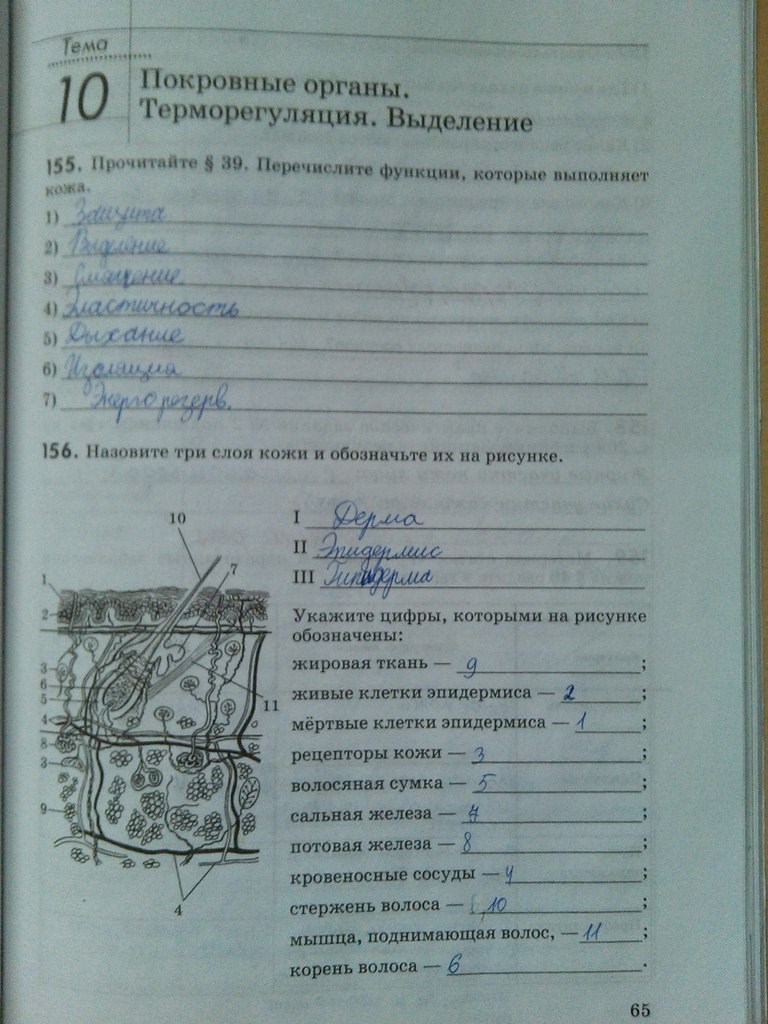 Тема
10
Покровные органы.
Терморегуляция. Выделение
155. Прочитайте § 39. Перечислите функции, которые выполняет
кожа.
1) Защита
2) Выделение
3) Смягчение
4) Эластичность
5) Дыхание
6) Изоляция
7) Энергорезерв.
156. Назовите три слоя кожи и обозначьте их на рисунке.
I Дерма
II Эпидермис
III Гиподерма
10
7
1
2
3
6
5
4
11
8
3
9
4
Укажите цифры, которыми на рисунке
обозначены:
жировая ткань — 9 ;
живые клетки эпидермиса — 2 ;
мёртвые клетки эпидермиса — 1 ;
рецепторы кожи — 3 ;
волосяная сумка — 5 ;
сальная железа — 7 ;
потовая железа — 8 ;
кровеносные сосуды — 4 ;
стержень волоса — 10 ;
мышца, поднимающая волос, — 11 ;
корень волоса — 6 .
65